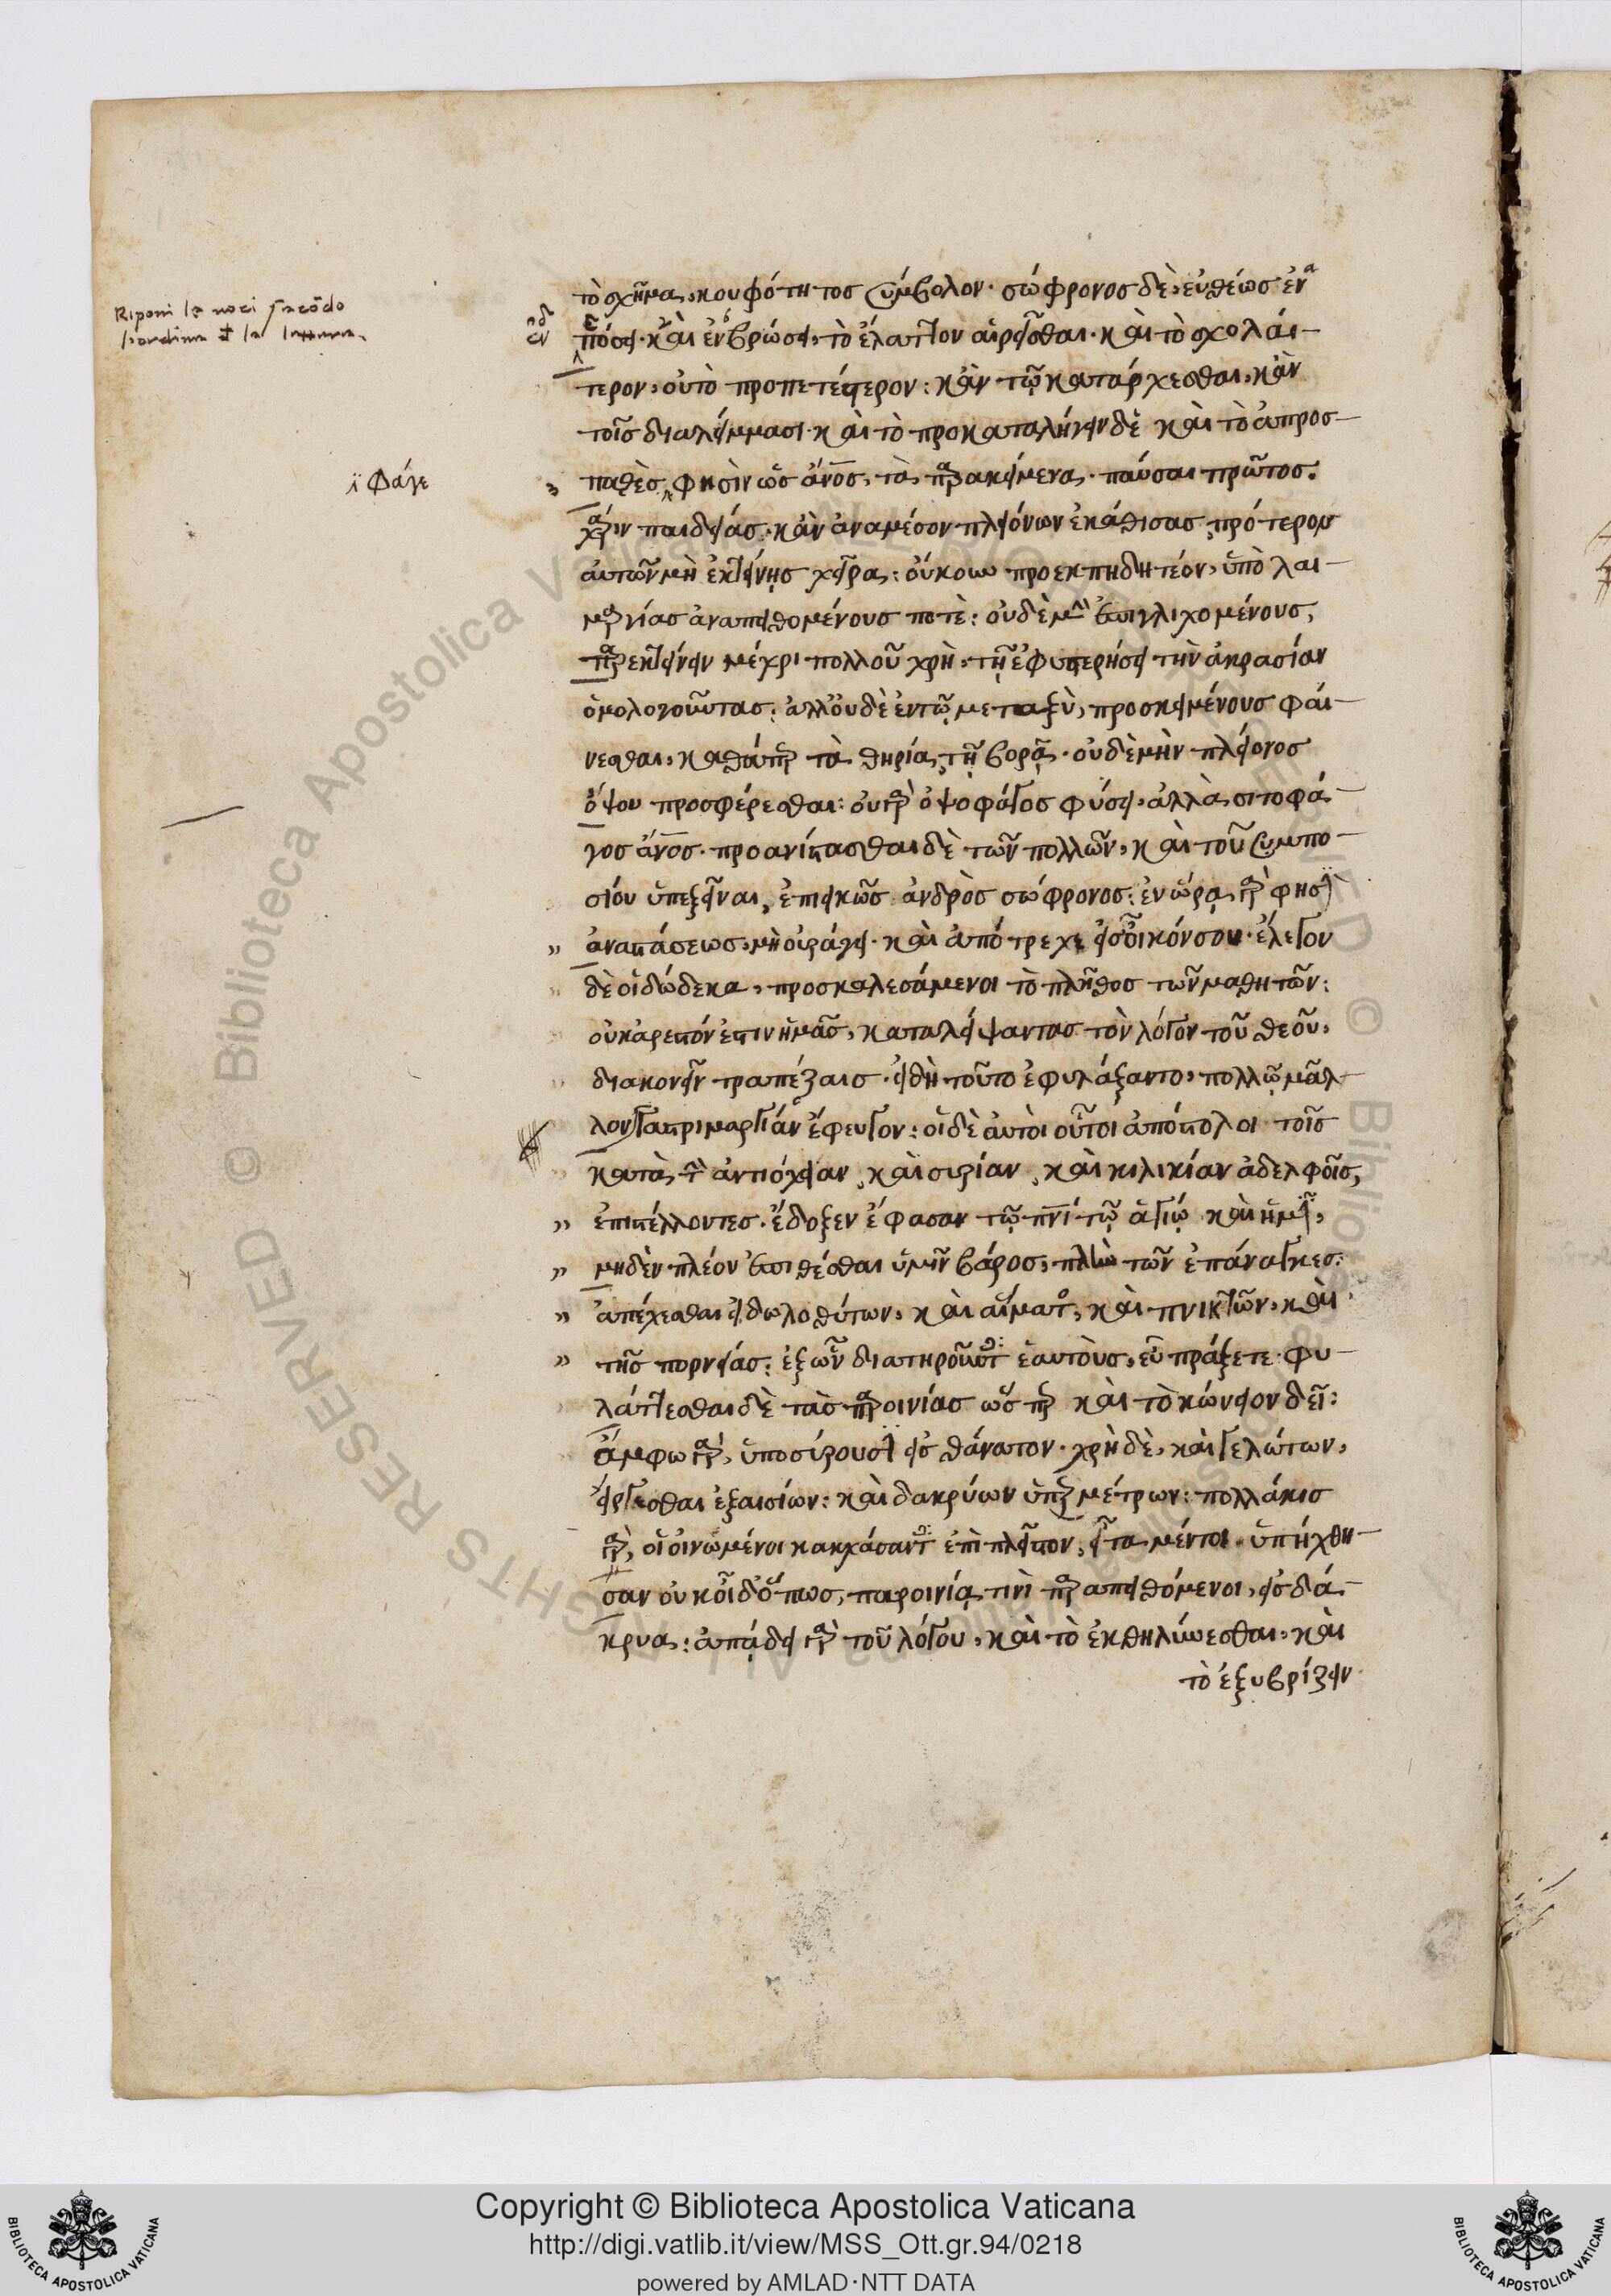 Riponi le voci facēdo
τὸ σχῆμα, κουφότητος σύμβολον· σώφρονος δὲ, εὐθέως ἐν
πόσει· καὶ ἐν βρώσει, τὸ ἔλαττον αἱρεῖσθαι· καὶ τὸ σχολαί-
τερον, οὐ τὸ προπετέστερον: κἀν τῷ κατάρχεσθαι, κἀν
τοῖς διαλείμμασι· καὶ τὸ προκαταλήγειν δὲ καὶ τὸ ἀπροσ-
ϊ φάγε
παθὲς, φησὶν ὡς ἄνος, τὰ παρακείμενα· παῦσαι πρῶτος.
χάριν παιδείας· κἂν ἀναμέσον πλειόνων ἐκάθισας, πρότερον
αὐτῶν μὴ ἐκτείνῃς χεῖρα: οὔκουν προεκπηδητέον, ὑπὸ λαι-
μαργίας ἀναπειθομένους ποτὲ: οὐδὲ μὴν ἐπιγλιχομένους,
παρεκτείνειν μέχρι πολλοῦ χρὴ, τῇ ἐφυστερήσει τὴν ἀκρασίαν
ὁμολογοῦντας: ἀλλ' οὐδὲ ἐν τῷ μεταξὺ, προσκειμένους φαί-
νεσθαι, καθάπερ τὰ θηρία, τῇ βορᾷ· οὐδὲ μὴν πλείονος
ὄψου προσφέρεσθαι: οὐ γὰρ ὀψοφάγος φύσει, ἀλλὰ σιτοφά-
γος ἄνος· προανίστασθαι δὲ τῶν πολλῶν, καὶ τοῦ συμπο-
σίου ὑπεξεῖναι, ἐπιεικῶς ἀνδρὸς σώφρονος: ἐν ὥρᾳ γὰρ φησὶ
ἀναστάσεως, μὴ οὐράγει· καὶ ἀπότρεχε εἰς οἶκόν σου· ἔλεγον
δὲ οἱ δώδεκα, προσκαλεσάμενοι τὸ πλῆθος τῶν μαθητῶν:
οὐκ ἀρεστόν ἐστιν ἡμᾶς, καταλείψαντας τὸν λόγον τοῦ θεοῦ,
διακονεῖν τραπέζαις· εἰ δὴ τοῦτο ἐφυλάξαντο, πολλῷ μᾶλ-
λον γαστριμαργίαν ἔφευγον: οἱ δὲ αὐτοὶ οὗτοι ἀπόστολοι τοῖς
κατὰ τὴν ἀντιόχειαν, καὶ συρίαν, καὶ κιλικίαν ἀδελφοῖς,
ἐπιστέλλοντες· ἔδοξεν ἔφασαν τῷ πνι τῷ ἁγίῳ καὶ ἡμῖν,
μηδὲν πλέον ἐπιθέσθαι ὑμῖν βάρος, πλὴν τῶν ἐπάναγκες:
ἀπέχεσθαι εἰδωλοθύτων, καὶ αἵματος, καὶ πνικτῶν, καὶ
τῆς πορνείας: ἐξ ὧν διατηροῦντες ἑαυτοὺς, εὖ πράξετε· φυ-
λάττεσθαι δὲ τὰς παροινίας ὥσπερ καὶ τὸ κώνειον δεῖ:
ἄμφω γὰρ, ὑποσύρουσι εἰς θάνατον· χρὴ δὲ, καὶ γελώτων,
εἴργεσθαι ἐξαισίων: καὶ δακρύων ὑπερμέτρων: πολλάκις
γὰρ, οἱ οἰνωμένοι κακχάσαντες ἐπὶ πλεῖστον, εἶτα μέντοι, ὑπήχθη-
σαν οὐκ οἶδ' ὅπως, παροινίᾳ τινὶ παραπειθόμενοι, εἰς δά-
κρυα: ἀπᾴδει γὰρ τοῦ λόγου, καὶ τὸ ἐκθηλύνεσθαι, καὶ
τὸ ἐξυβρίζειν
Copyright © Biblioteca Apostolica Vaticana
http://digi.vatlib.it/view/MSS_Ott.gr.94/0218
powered by AMLAD·NTT DATA